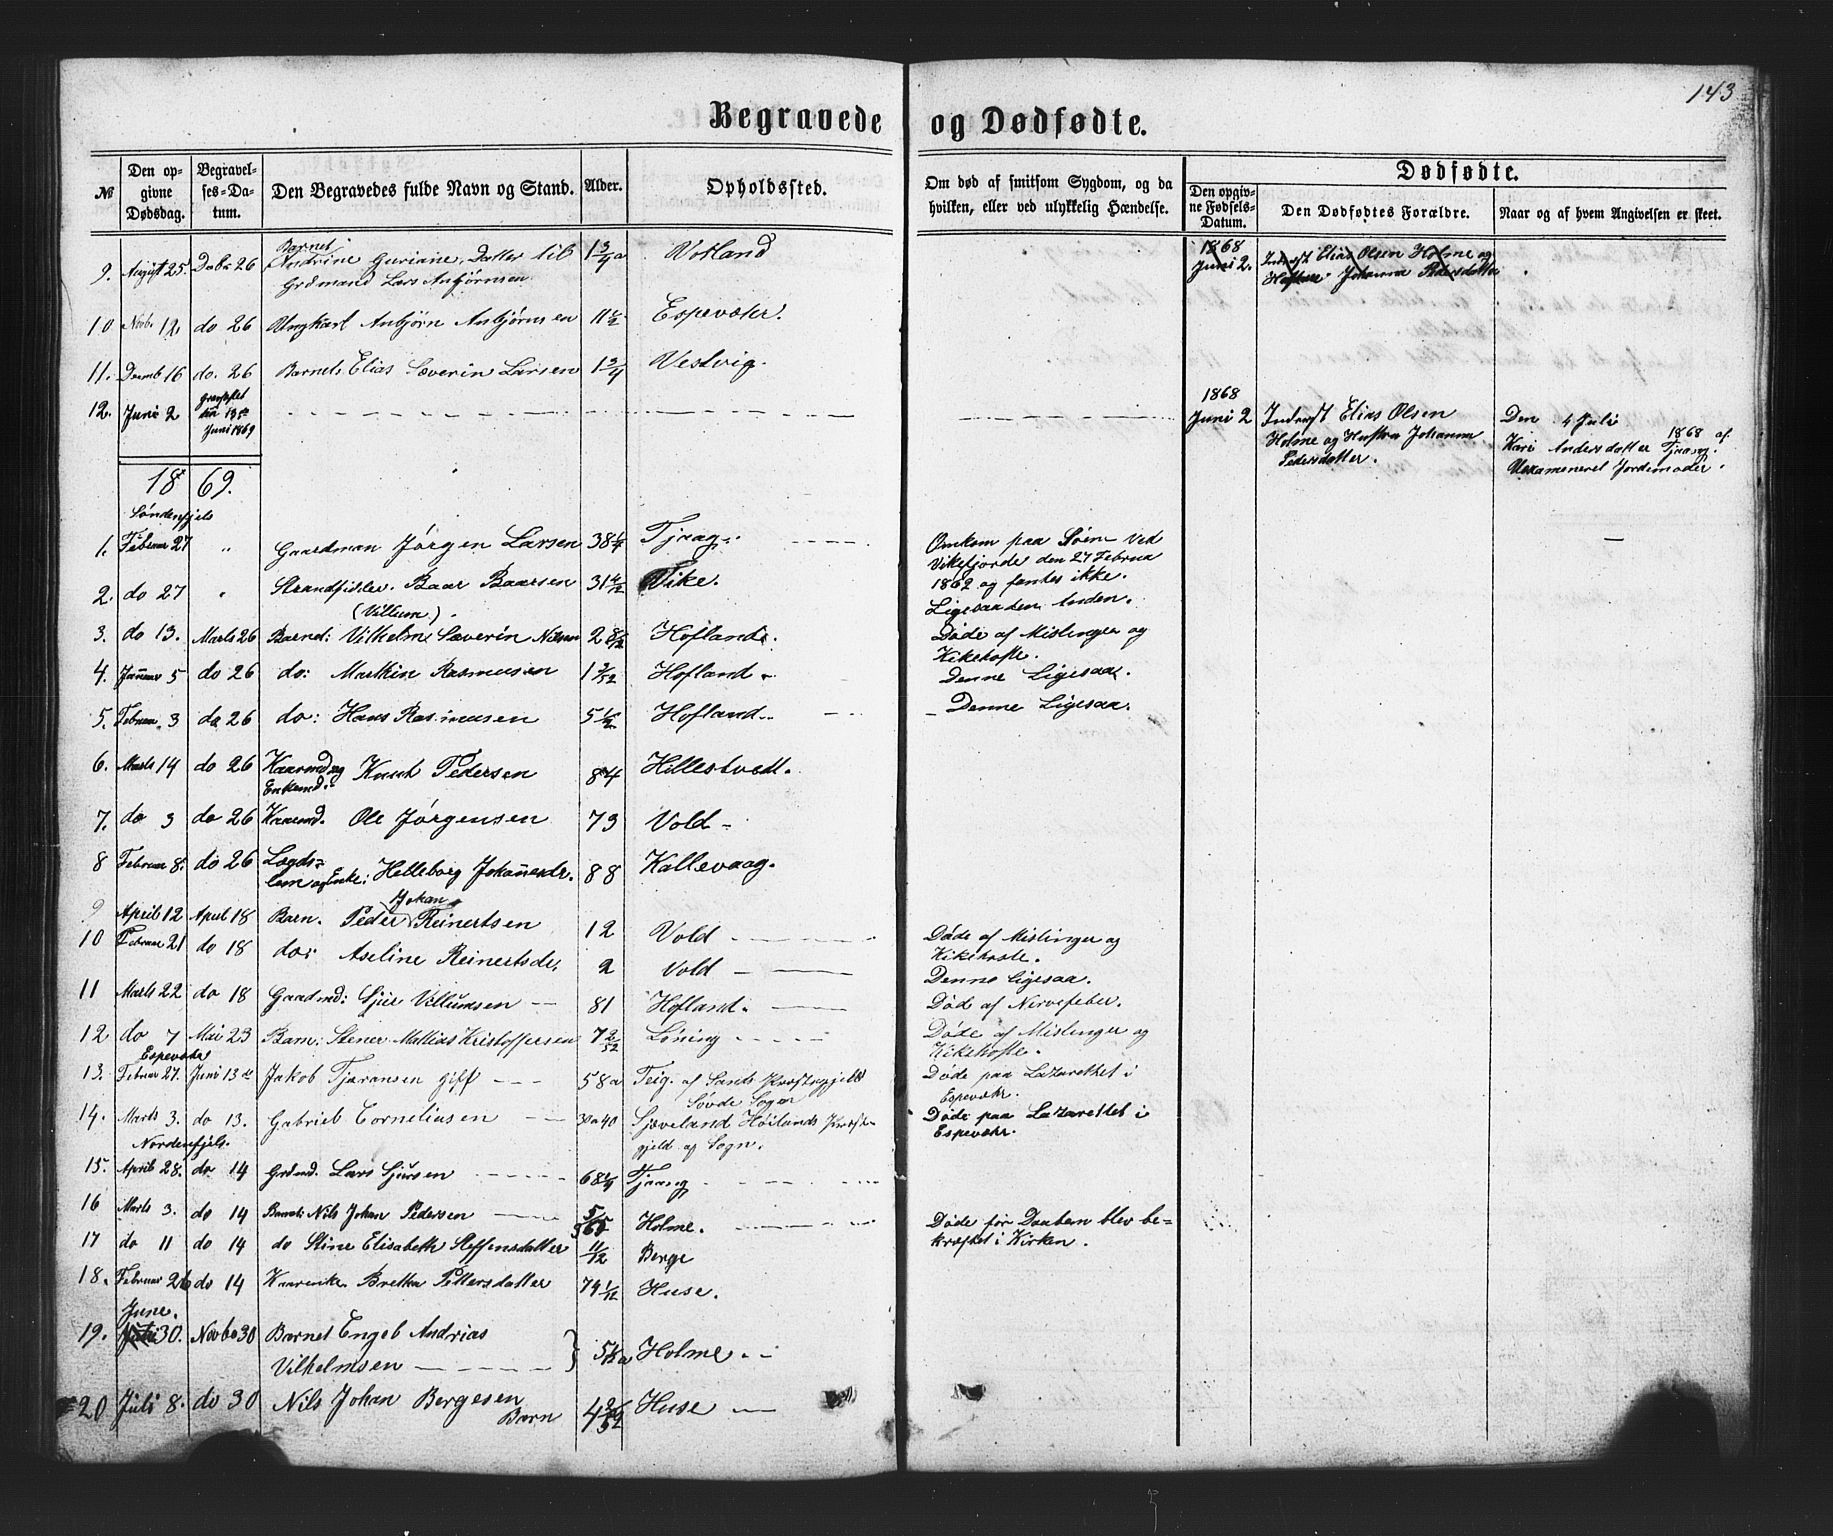 143
Begravede og Dødfødte.
№ Den opgivne Dødsdag. Begravelses-Datum. Den Begravedes fulde Navn og Stand. Alder. Opholdssted. Om død af smitsom Sygdom, og da hvilken, eller ved ulykkelig Hændelse. Dødfødte. Den opgivne Fødsels-Datum. Den Dødfødtes Forældre. Naar og af hvem Angivelsen er skeet.
9. August 25. Barnet Andrine Guriane, Datter til 1 3/4 a Votland 1868 Juni 2. Indrest Elias Olsen Holme og
Grdmand Lars Anbjørnsen Hustru Johanna Pedersdatter
10 Novbr 12. do 26 Ungkarl Anbjørn Anbjørnsen Espevær.
11. Decemb 16 do. 26 Barnet Elias Severin Larsen 1 3/4 Vestvig.
12. Juni 2 Juni 1869 1868 Juni 2 Indrest Elias Olsen Den 4 Juli
Holme og Hustru Johanna 1868 af
Kari Andersdatter Tjaang
Pedersdatter. Uexamineret Jordemoder.
1869.
Søndenfjels
1. Februar 27 " Gaardman Jørgen Larsen 38 Tjaag Omkom paa Søen ved
Vikefjorde den 27 Februa
2. do 27 " Strandsidder. Baar Baarsen 31 Vike. og fantes ikke.
(Villum) Ligesaa den Anden.
3. do 13. Marts 26 Barnet: Vilhelm Severin Nilsen 2 Hofland. Døde af Mislinger og
Kikehoste.
4. Januar 5 do 26 do: Marthin Rasmusen 1 Hofland. Denne Ligesaa.
5. Februar 3 do 26 do: Hans Rasmusen 5 Hofland. Denne Ligesaa.
6. Marts 14 do 26 Kaarmd og Enkemd. Knut Pedersen 84 Hillestvedt.
7. do 3 do 26 Kaarmd. Ole Jørgensen 73 Vold
8 Februar 8. do 26 Lægdslem og Enke: Helleborg Johannesdr. 88 Kallevaag.
9 April 12 April 18 Barn. Peder Johan Reinertsen 12 Vold Døde af Mislinger og
Kikehoste.
10 Februar 21 do 18 do: Aseline Reinertsdr. 2 Vold Denne Ligesaa.
11 Marts 22 do 18 Gaardmd: Sjur Villumsen 81 Hofland. Død af Nervefeber.
12 do 7 Mai 23 Barn: Stener Mathias Kristoffersen 7 2/52 Løning Døde af Mislinger og
Kikehoste.
Espevær
13. Februar 27. Juni 13de Jakob Tjøransen gift 58 a Teig. af Sands Præstegjeld Døde paa Lazarettet i
Søvde Sogn Espevær.
14. Marts 3. do 13. Gabriel Corneliusen 30 a 40 Sjøveland Høilands Præstegjeld og Sogn. Døde paa Lazarettet i
Espevær.
Nordenfjels.
15. April 28. do 14 Grdmd. Lars Sjursen 68 Tjaang
16 Marts 3. do 14 Barnet: Nils Johan Pedersen Holme. Døde før Daaben blev bekræftet i Kirken.
17 do 11 do 14 do Stine Elisabeth Steffensdatter 11/12 Berge
18. Februar 26 do 14 Kaarenke. Bretha Pettersdatter 74 1/12 Huse.
June.
19. 30. Novbr 30 Barnet Engel Andrias
Vilhelmsen 5 Holme.
20 Juli 8. do 30 Nils Johan Bergesen
Barn 4 Huse